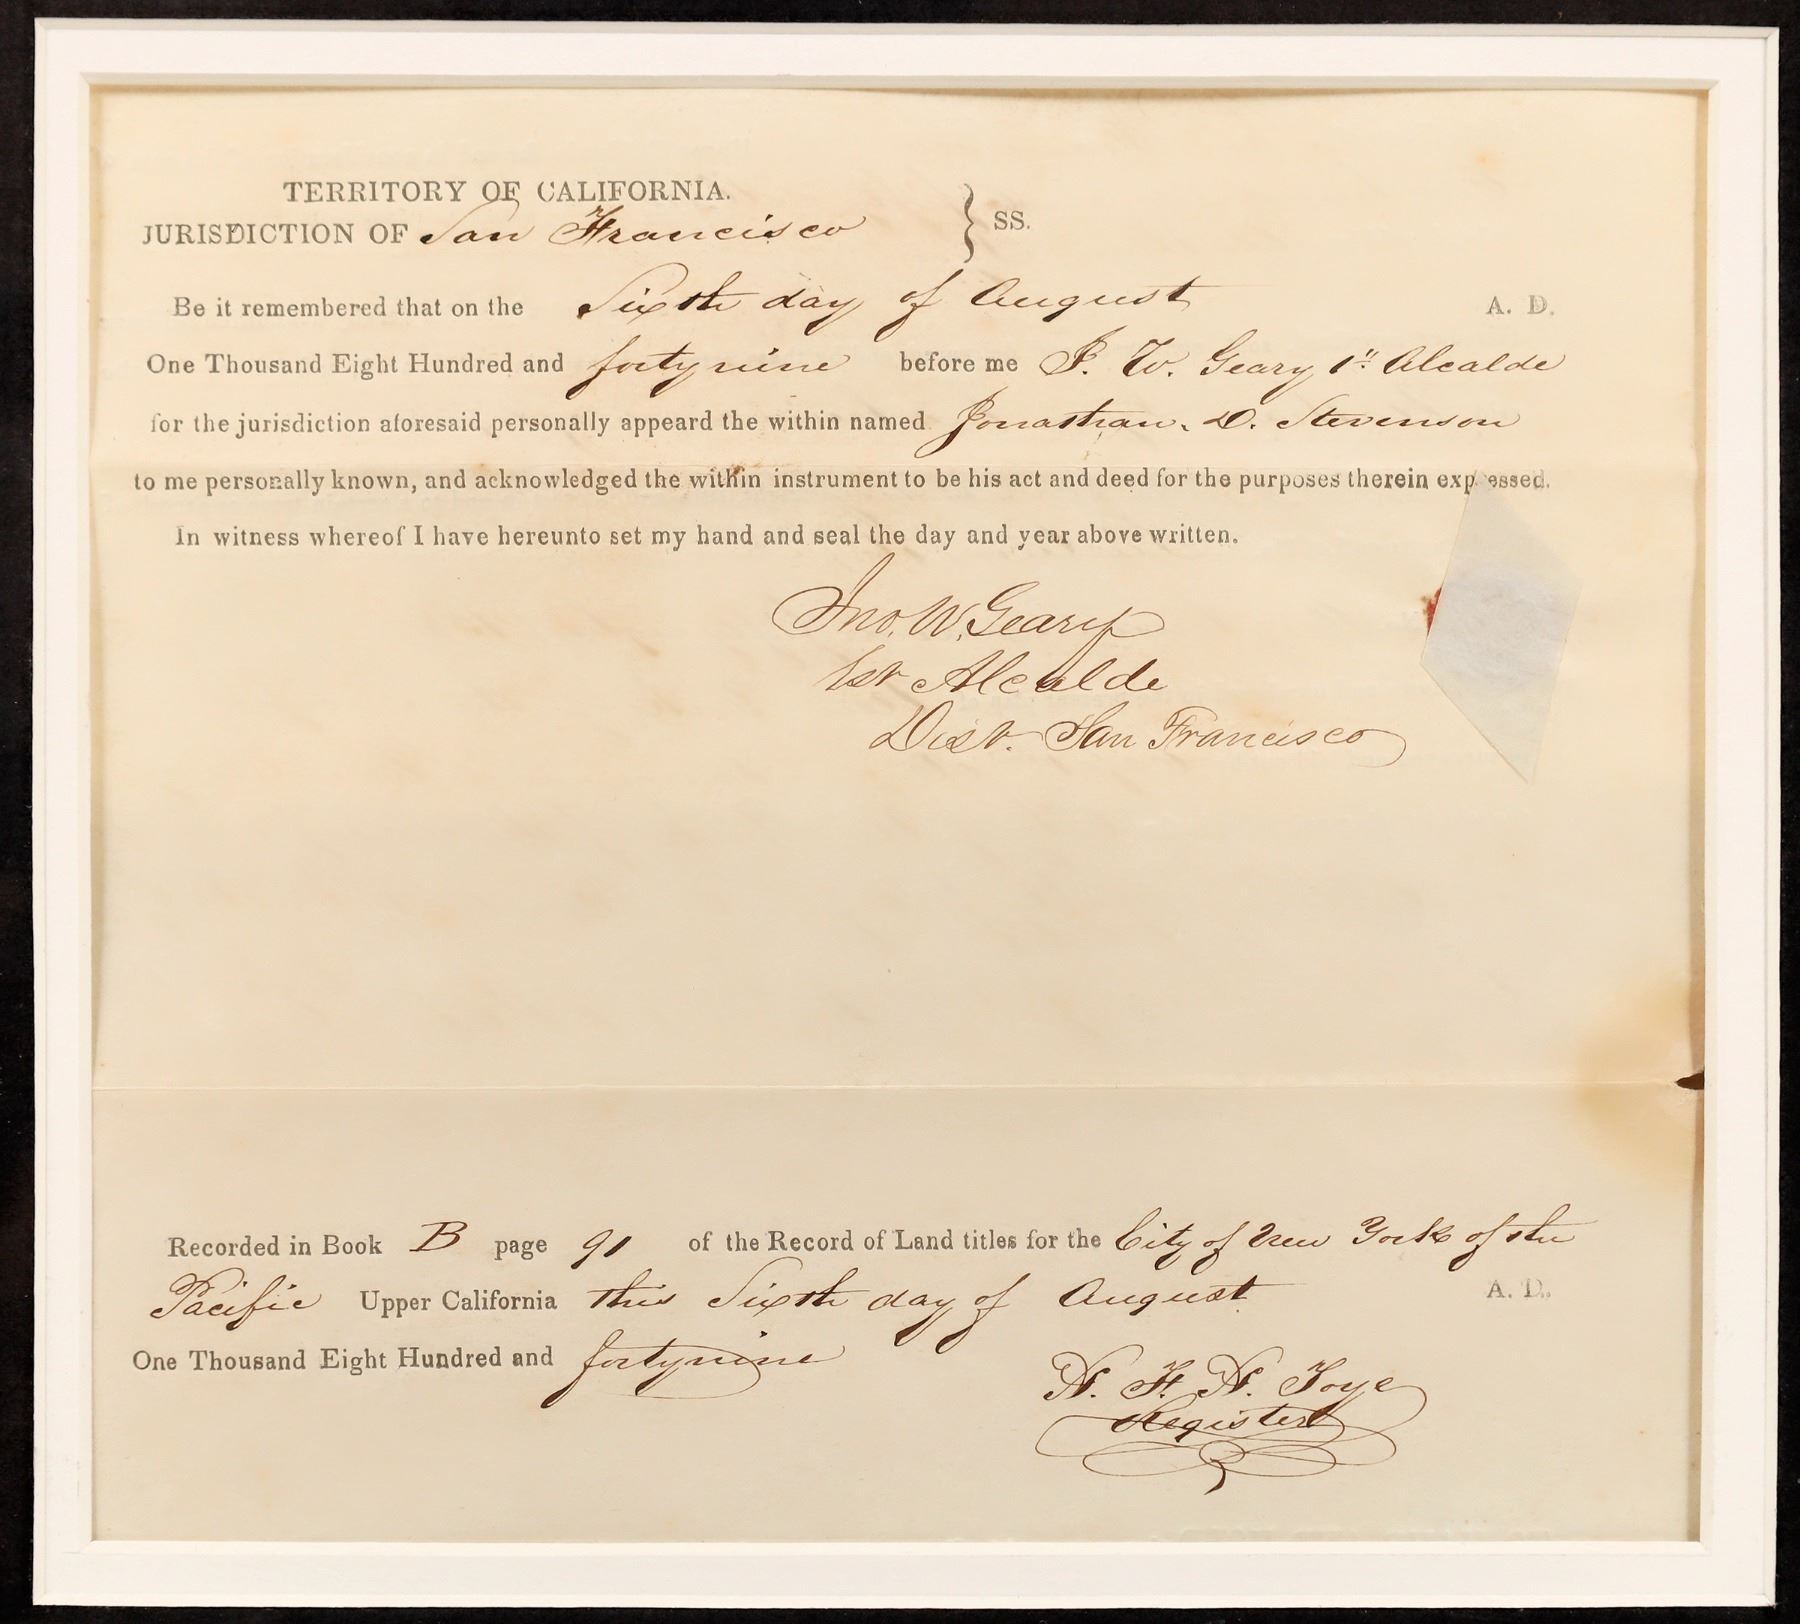 TERRITORY OF CALIFORNIA.
JURISDICTION OF San Francisco } SS.
Be it remembered that on the Sixth day of August A. D.
One Thousand Eight Hundred and forty nine before me J. W. Geary 1st Alcalde
for the jurisdiction aforesaid personally appeard the within named Jonathan. D. Stevenson
to me personally known, and acknowledged the within instrument to be his act and deed for the purposes therein expressed.
In witness whereof I have hereunto set my hand and seal the day and year above written.
Jno. W. Geary
1st Alcalde
Dist. San Francisco
Recorded in Book B page 91 of the Record of Land titles for the City of New York of the
Pacific Upper California this Sixth day of August A. D.
One Thousand Eight Hundred and forty nine
Register